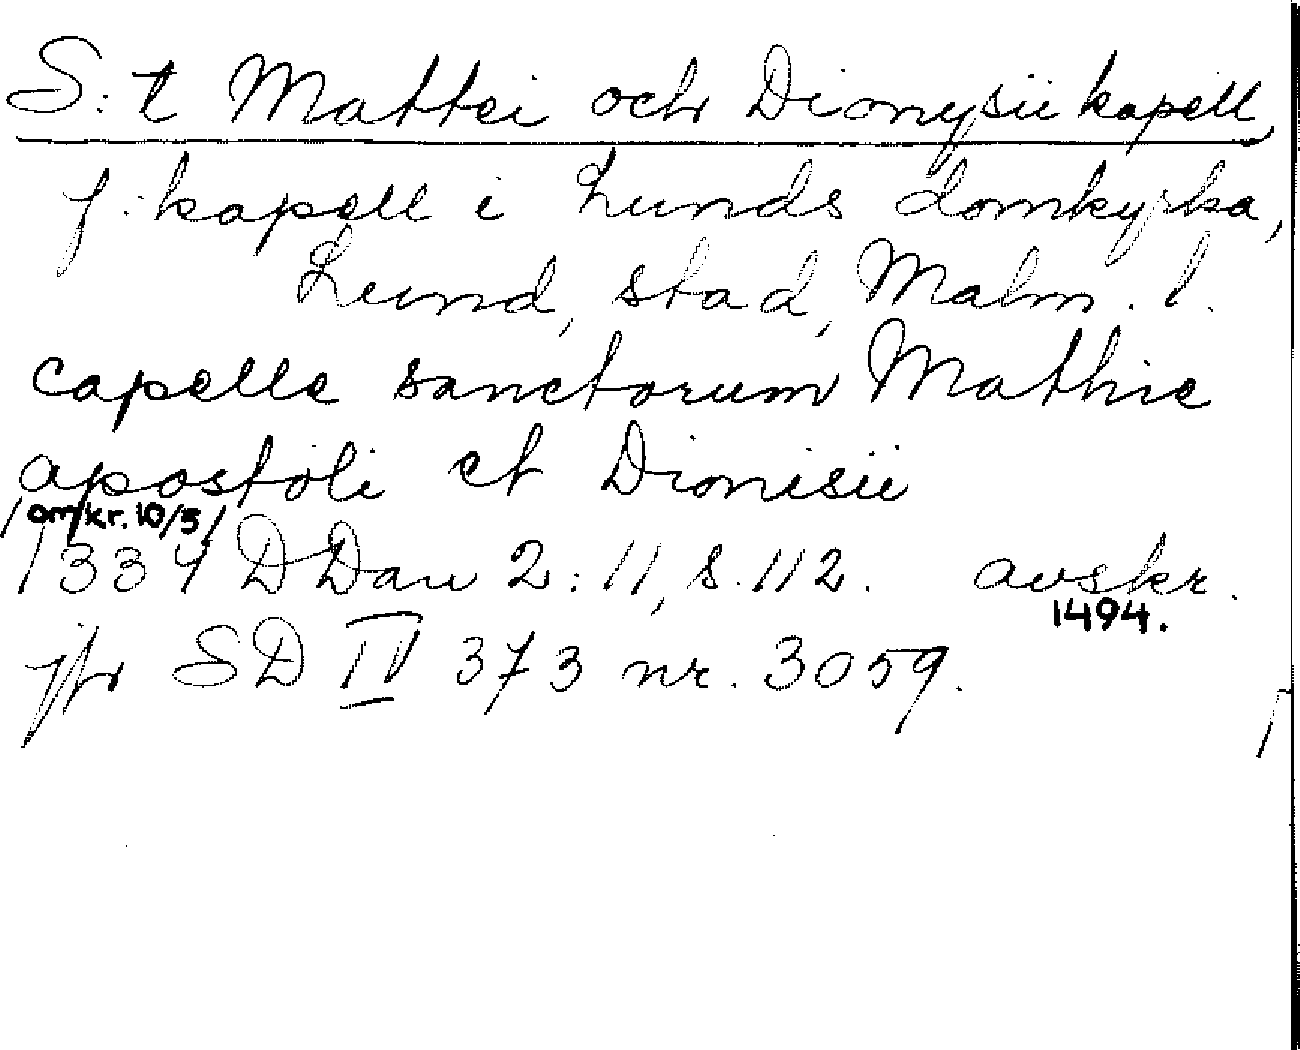 S:t Mattei och Dionysii kapell,
f. kapell i Lunds domkyrka,
Lund, stad, Malm. l.
capelle sanctorum Mathie
apostoli et Dionisii
/omkr. 10/5/
1334 DDan 2:11, s. 112. avskr.
1494.
jfr SD IV 373 nr. 3059.